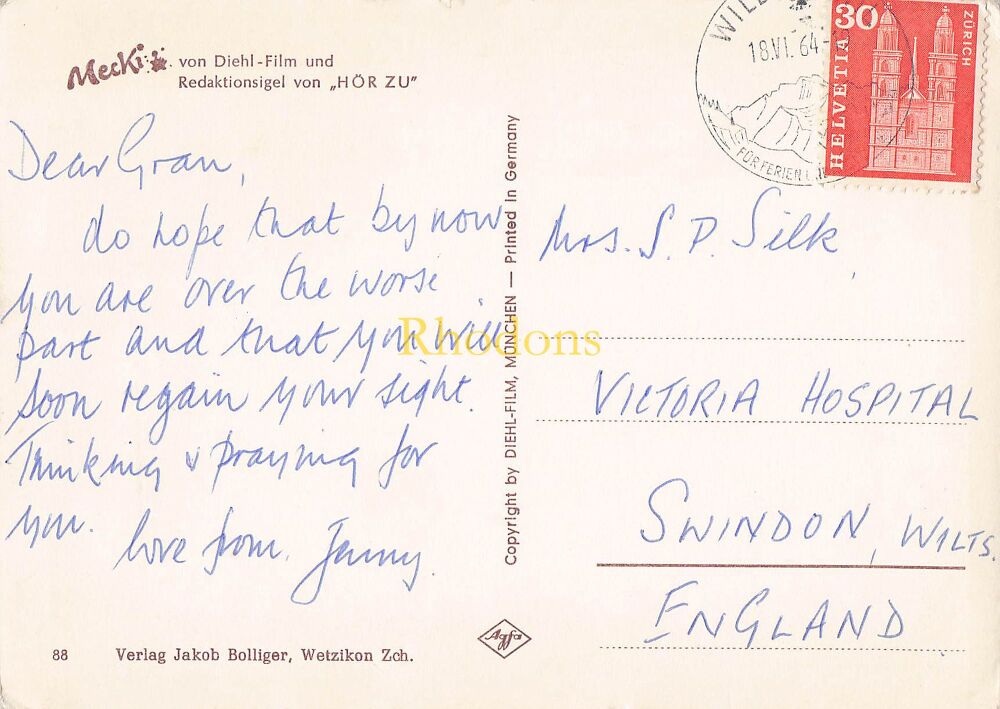 Mecki
von Diehl-Film und
Redaktionsigel von „HÖR ZU”
18.VI.64
FÜR FERIEN
30
HELVETIA
ZÜRICH
Dear Gran,
do hope that by now
you are over the worse
part and that you will
soon regain your sight.
Thinking & praying for
you.
love from Jenny.
Copyright by DIEHL-FILM, MÜNCHEN — Printed in Germany
Mrs. S. P. Silk,
VICTORIA HOSPITAL
SWINDON, WILTS.
ENGLAND
Rhodons
88 Verlag Jakob Bolliger, Wetzikon Zch.
Agfa